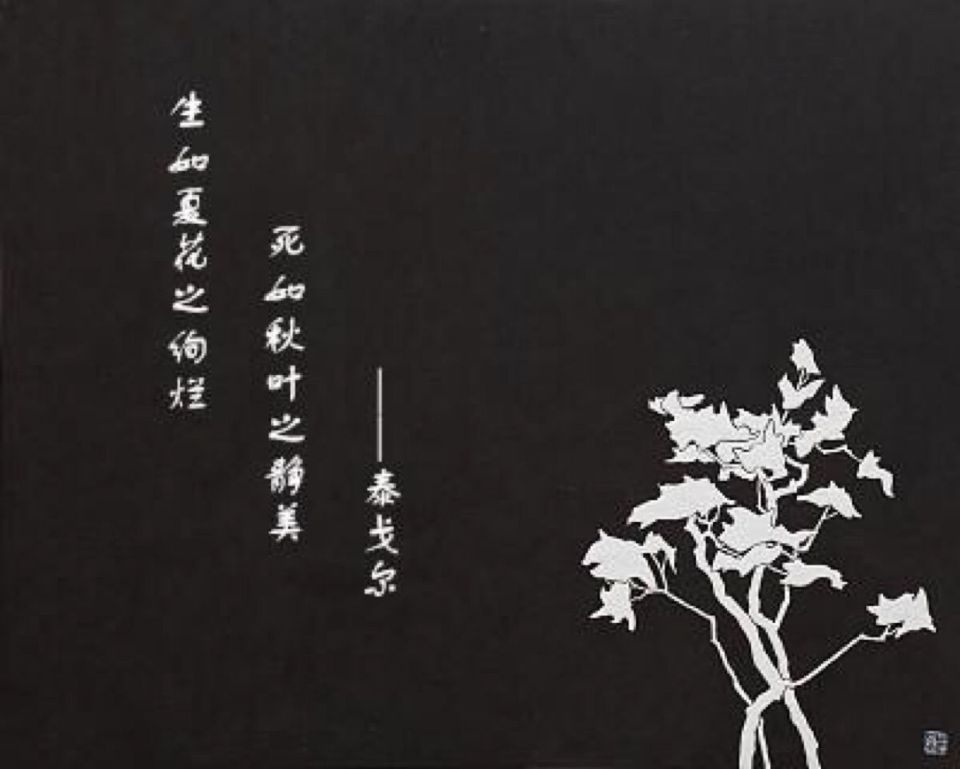 生如夏花之绚烂
死如秋叶之静美
——泰戈尔